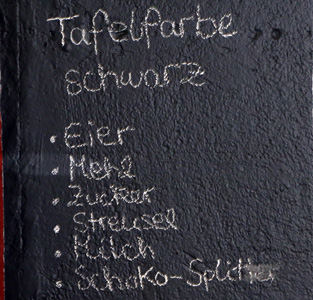 Tafelfarbe
schwarz
• Eier
• Mehl
• Zucker
• Streusel
• Milch
• Schoko-Splitter